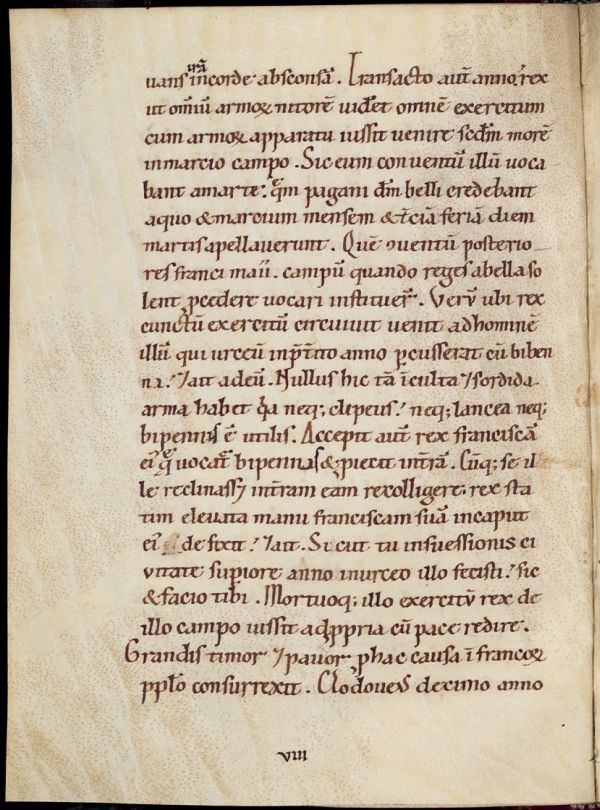 irā
uans incorde absconsā. Transacto aut̄ anno, rex
ut om̄iū armoꝝ nitorē uider̄et omnē exercitum
cum armoꝝ apparatu iussit venire scdm̄ morē
in marcio campo. Sic eum conuentū illū uoca
bant amarte. qm̄ pagani dm̄ belli credebant
aquo & marcium mensem & tciā feriā diem
martis apellauerunt. Quē ꝯuentū posterio
res franci maii. campū quando reges abella so
lent ꝓcedere uocari instituer̄. Verū ubi rex
cunctū exercitū circuiuit uenit adhominē
illū qui urceū inp̄t̄ito anno ꝑcusserat cū biben
na. ⁊ait adeū. Nullus hic tā īculta ⁊sordida
arma habet q̄a neq; clipeus. neq; lancea neq;
bipennis ē utilis. Accepit aut̄ rex franciscā
ei' q̄ uocat̄ bipennis & ꝓiecit int̄rā. Cūq; se il
le reclinass& int̄ram eam recolligere. rex sta
tim eleuata manu franciscam suā incaput
ei' defixit. ⁊ait. Sicut tu insuessionis ci
uitate supiore anno inurceo illo fecisti. sic
& facio tibi. Mortuoq; illo exercitū rex de
illo campo iussit adꝓpria cū pace redire.
Grandis timor ⁊pauor ꝓhac causa ī francoꝝ
ppl̄o consurrexit. Clodoueus decimo anno
VIII